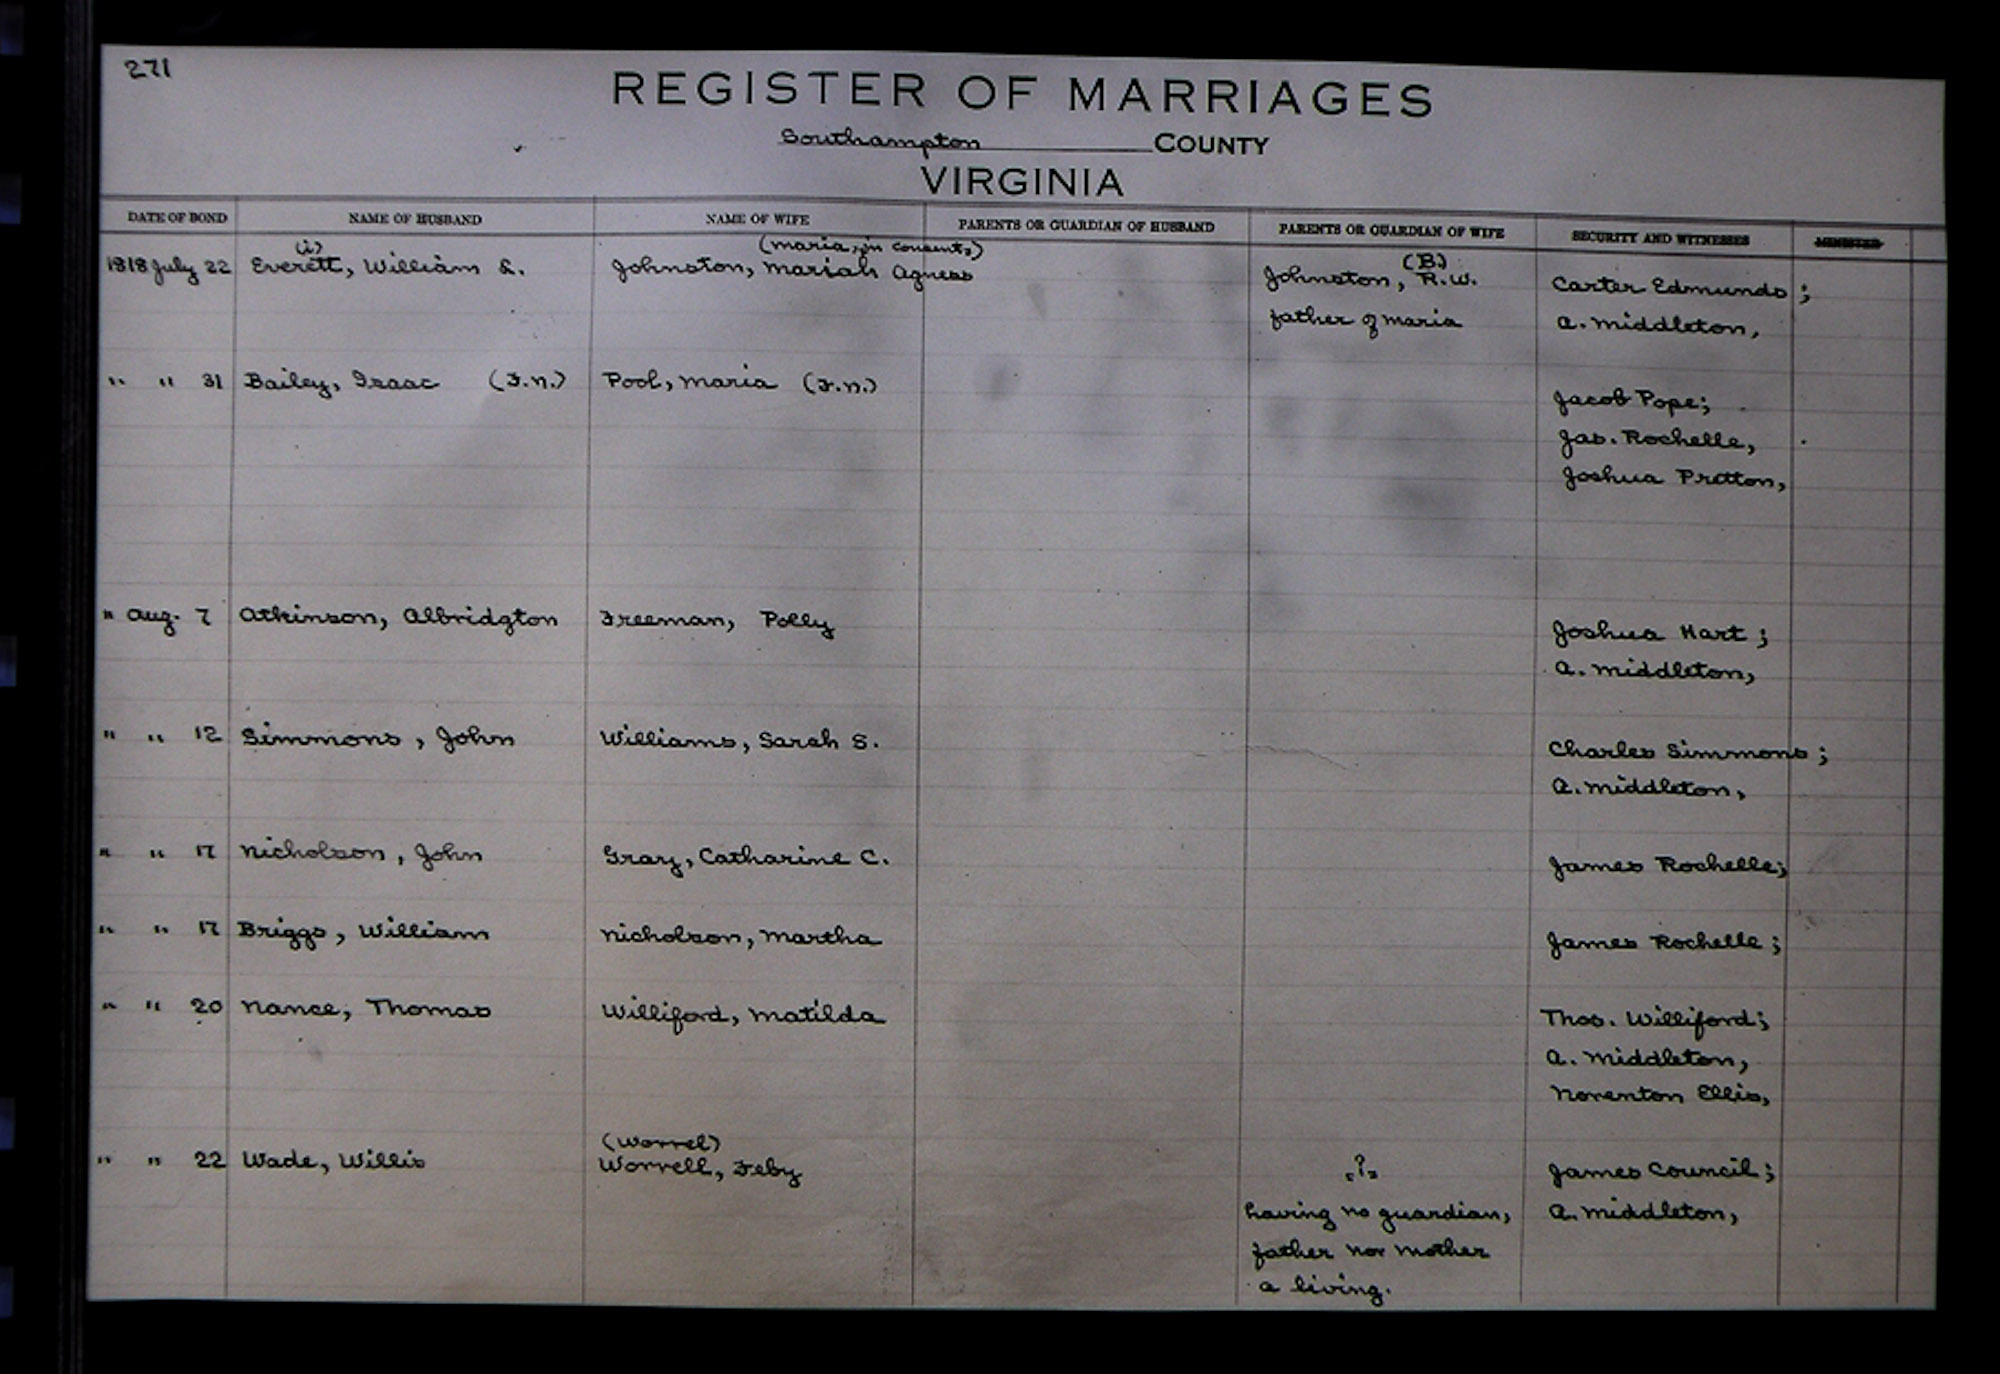 271
REGISTER OF MARRIAGES
Southampton COUNTY
VIRGINIA
DATE OF BOND NAME OF HUSBAND NAME OF WIFE PARENTS OR GUARDIAN OF HUSBAND PARENTS OR GUARDIAN OF WIFE SECURITY AND WITNESSES MINISTER
(i) (Maria, in consents) (B)
1818 July 22 Everett, William &. Johnston, Mariah Agness Johnston, R.W. Carter Edmunds;
father of Maria A. Middleton,
" " 31 Bailey, Isaac (F.n.) Pool, Maria (F.n.) Jacob Pope;
Jas. Rochelle,
Joshua Pretton,
" Aug. 7 Atkinson, Albridgton Freeman, Polly Joshua Hart;
A. Middleton,
" " 12 Simmons, John Williams, Sarah S. Charles Simmons;
A. Middleton,
" " 17 Nicholson, John Gray, Catharine C. James Rochelle;
" " 17 Briggs, William Nicholson, Martha James Rochelle;
" " 20 Nance, Thomas Williford, Matilda Thos. Williford;
A. Middleton,
Norenton Ellis,
(Worrel)
" " 22 Wade, Willis Worrell, Feby "?" James Council;
having no guardian, A. Middleton,
father nor mother
a living.